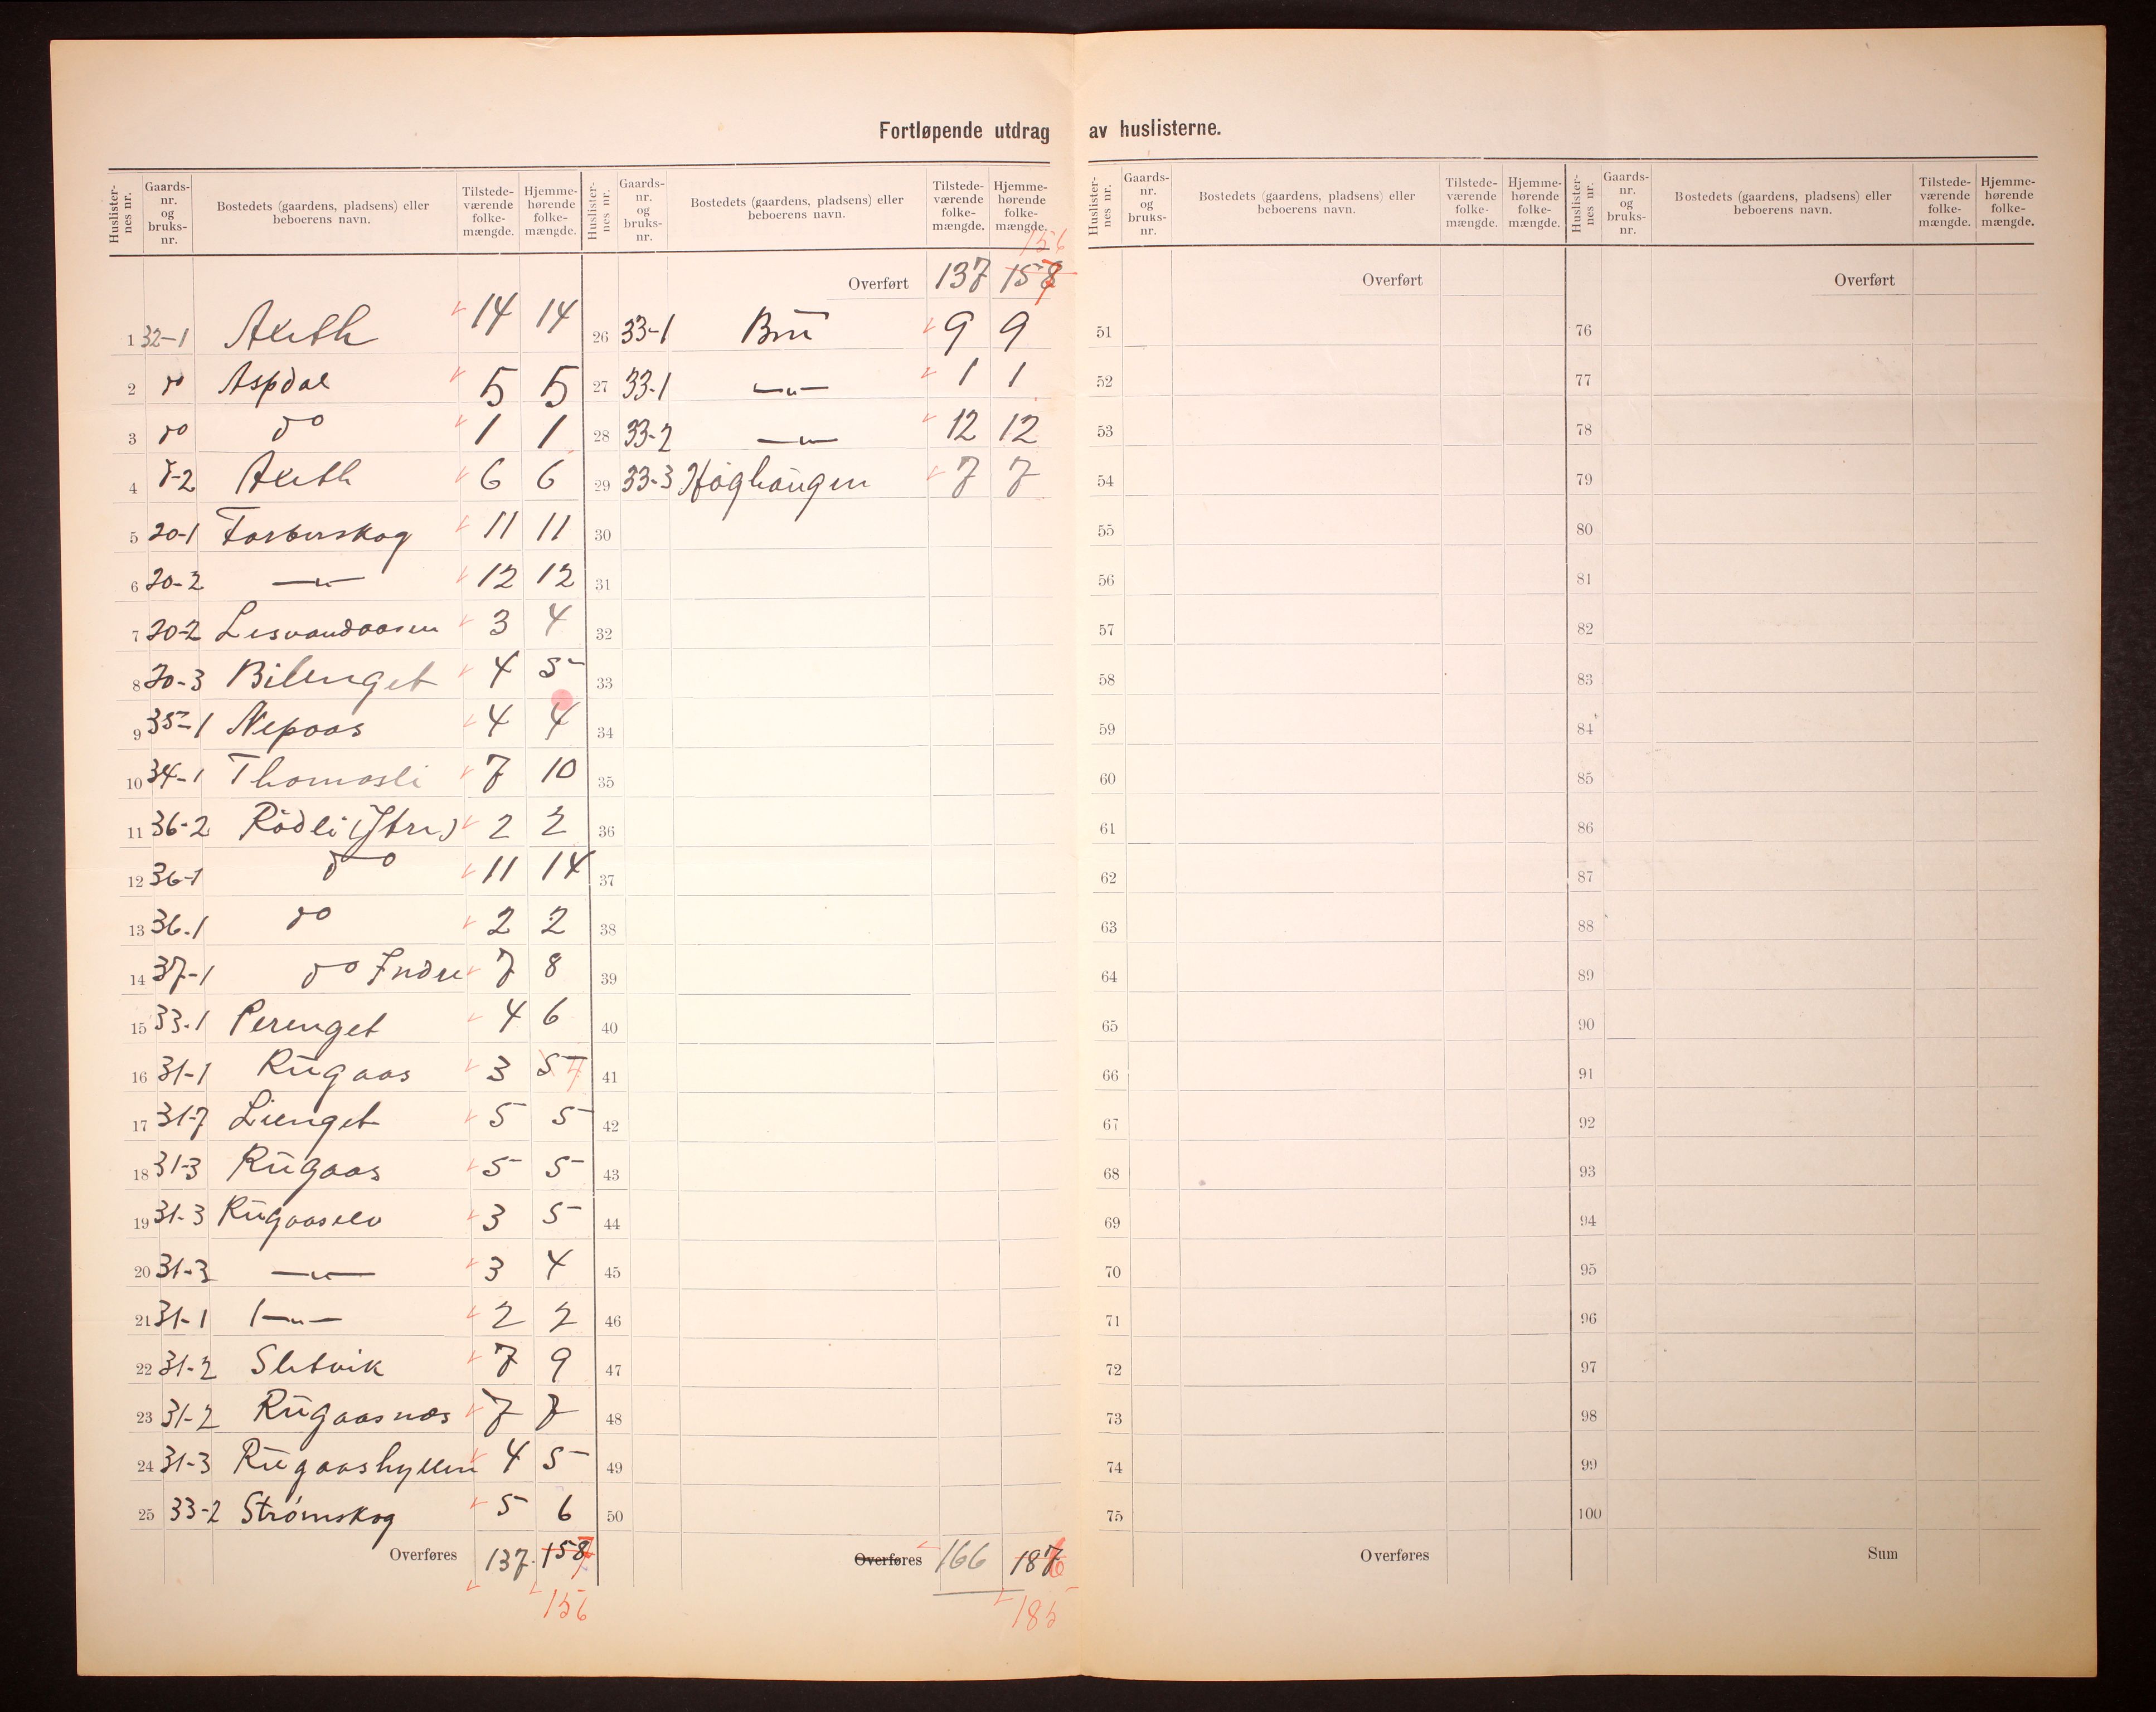 Fortløpende utdrag av huslisterne.
Huslisternes nr. Gaards-nr. og bruks-nr. Bostedets (gaardens, pladsens) eller beboerens navn. Tilstedeværende folkemængde. Hjemmehørende folkemængde.
1 32-1 Akseth 14 14
2 do Aspdal 5 5
3 do do 1 1
4 -2 6 6
5 20-1 11 11
6 20-2 —〃— 12 12
7 20-2 3 4
8 20-3 Bilenget 4 5
9 35-1 Nepaas 4 4
10 34-1 Thomasli 7 10
11 36-2 Rödli (Ytre) 2 2
12 36-1 do 11 14
13 36.1 do 2 2
14 37-1 do Indre 7 8
15 33.1 Perenget 4 6
16 31-1 Rugaas 3 5 4
17 31-7 Lienget 5 5
18 31-3 Rugaas 5 5
19 31-3 Rugaaselv 3 5
20 31-3 —〃— 3 4
21 31-1 —〃— 2 2
22 31-2 Sletvik 7 9
23 31-2 Rugaasnæs 7 7
24 31-3 Rugaashyllen 4 5
25 33-2 Strömskog 5 6
Overføres 137. 158 7
156
Huslisternes nr. Gaards-nr. og bruks-nr. Bostedets (gaardens, pladsens) eller beboerens navn. Tilstedeværende folkemængde. Hjemmehørende folkemængde.
156
Overført 137 158 7
26 33-1 Bru 9 9
27 33-1 —〃— 1 1
28 33-2 —〃— 12 12
29 33-3 Høghaugen 7 7
30
31
32
33
34
35
36
37
38
39
40
41
42
43
44
45
46
47
48
49
50
Overføres 166 187 6
185
Huslisternes nr. Gaards-nr. og bruks-nr. Bostedets (gaardens, pladsens) eller beboerens navn. Tilstedeværende folkemængde. Hjemmehørende folkemængde.
Overført
51
52
53
54
55
56
57
58
59
60
61
62
63
64
65
66
67
68
69
70
71
72
73
74
75
Overføres
Huslisternes nr. Gaards-nr. og bruks-nr. Bostedets (gaardens, pladsens) eller beboerens navn. Tilstedeværende folkemængde. Hjemmehørende folkemængde.
Overført
76
77
78
79
80
81
82
83
84
85
86
87
88
89
90
91
92
93
94
95
96
97
98
99
100
Sum